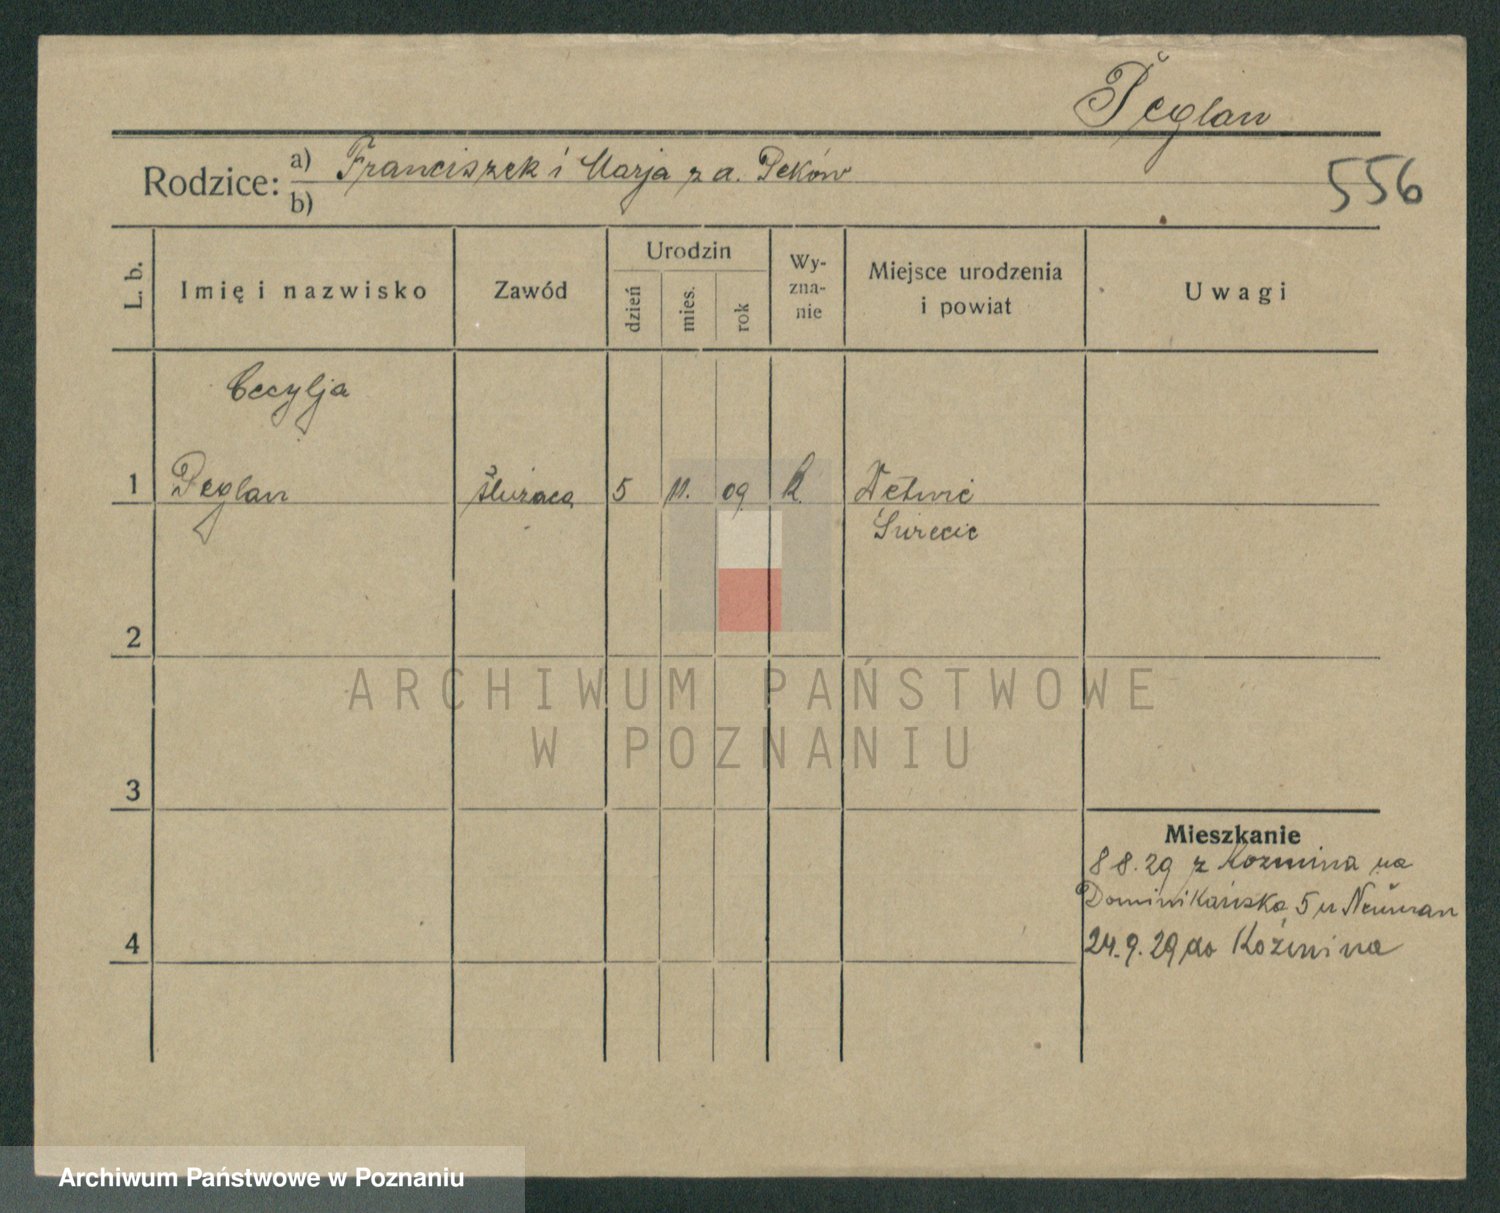 Peglan
Rodzice: a) Franciszek i Marja z d. Peków
b)
556
L. b.
Imię i nazwisko
Zawód
Urodzin
dzień
mies.
rok
Wy-
zna-
nie
Miejsce urodzenia
i powiat
Uwagi
Cecylja
1 Peglan służąca 5 11. 09 k.
2
3
4
Mieszkanie
8 8. 29 z Kozmina na
Dominikańska 5 u Neuman
24. 9. 29 do Koźmina
ARCHIWUM PAŃSTWOWE
W POZNANIU
Archiwum Państwowe w Poznaniu